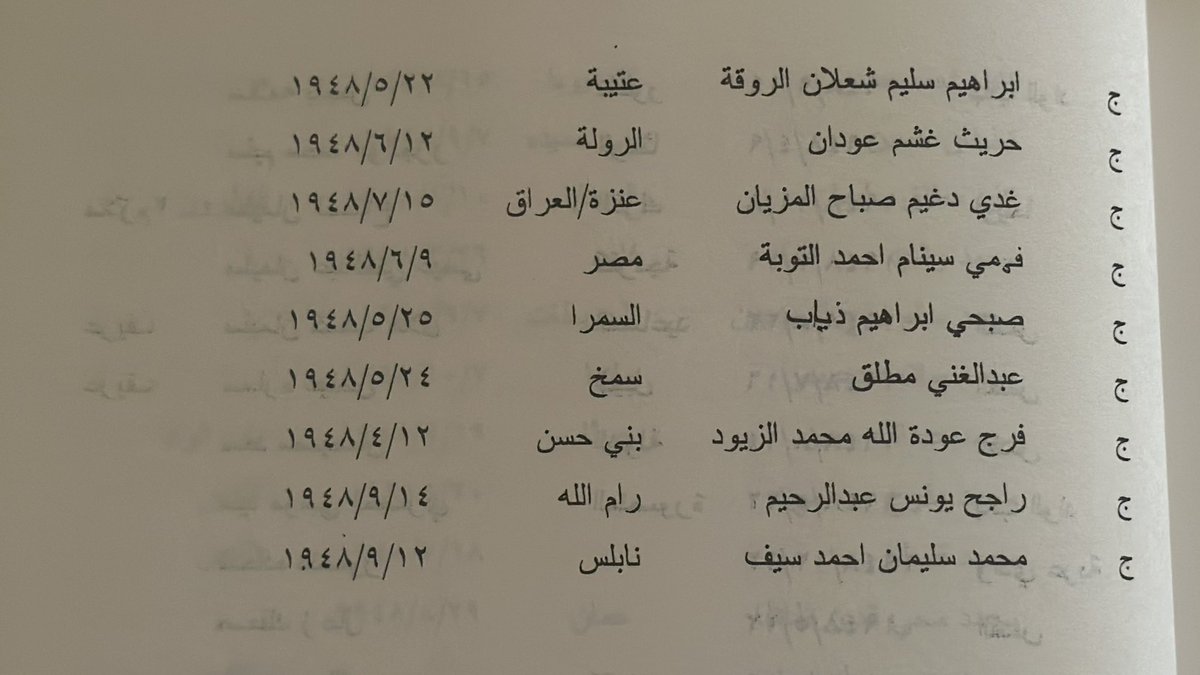 ج ابراهيم سليم شعلان الروقة عتيبة ١٩٤٨/٥/٢٢
ج حريث غشم عودان الرولة ١٩٤٨/٦/١٢
ج غدي دغيم صباح المزيان عنزة/العراق ١٩٤٨/٧/١٥
ج فهمي سينام احمد التوبة مصر ١٩٤٨/٦/٩
ج صبحي ابراهيم ذياب السمرا ١٩٤٨/٥/٢٥
ج عبدالغني مطلق سمخ ١٩٤٨/٥/٢٤
ج فرج عودة الله محمد الزيود بني حسن ١٩٤٨/٤/١٢
ج راجح يونس عبدالرحيم رام الله ١٩٤٨/٩/١٤
ج محمد سليمان احمد سيف نابلس ١٩٤٨/٩/١٢